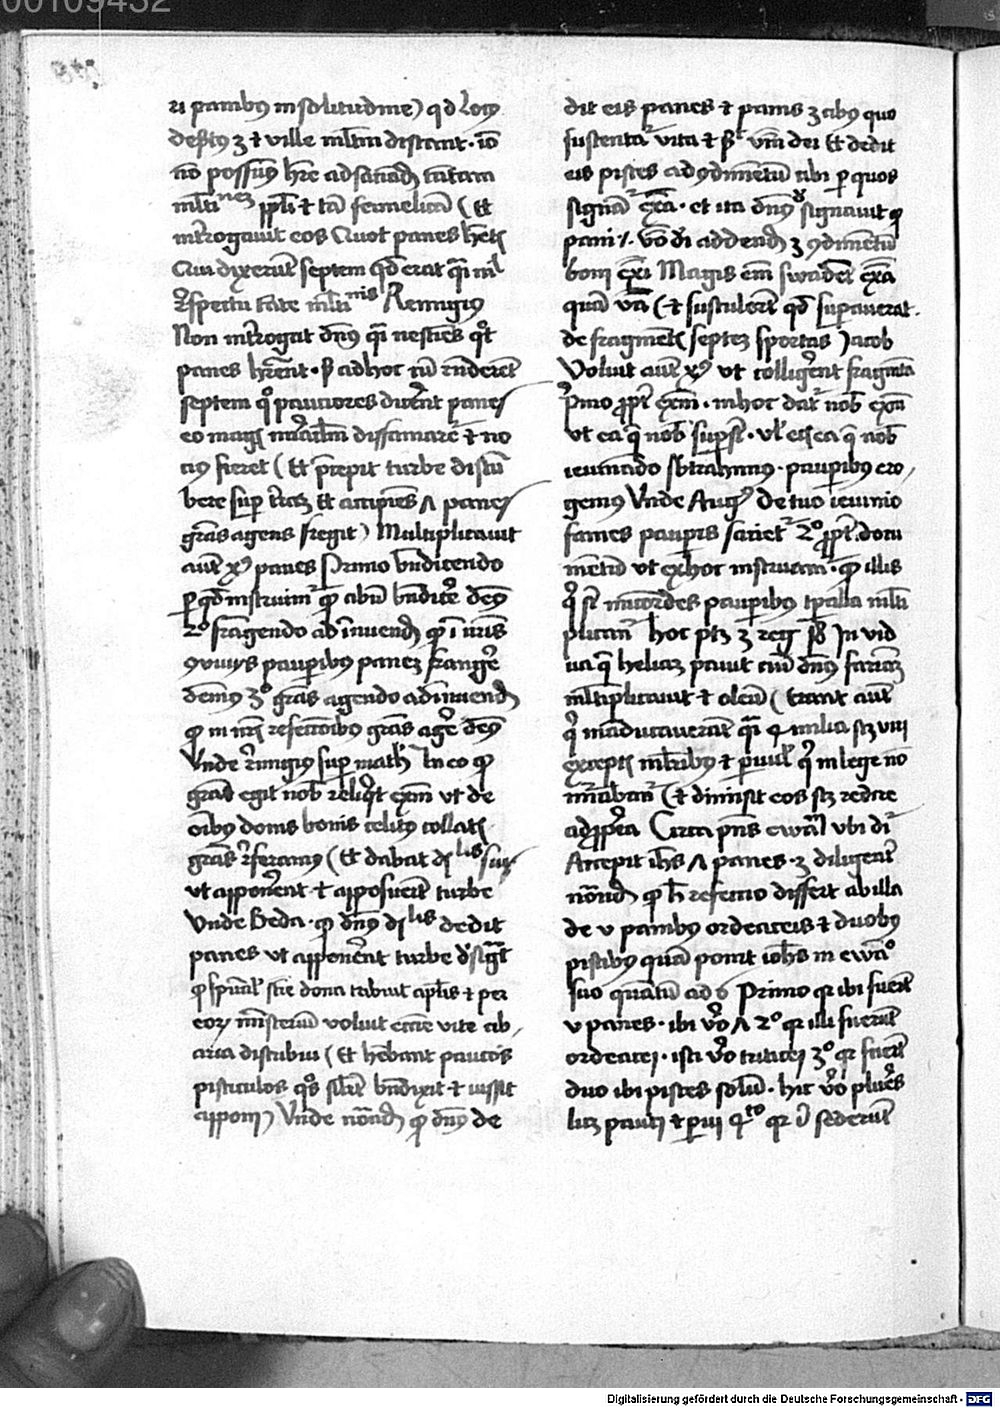 00109432
ri panibus in solitudine) qd locus
desertus 3 et ville multum distant. io
no possumus hre ad satiandum tantam
multitudinem ppli et tam famelicam (Et
interrogavit eos Quot panes hetis
Qui dixerunt septem qd erat quasi nil
respectu tante multitudinis Remigius
Non interrogat dns quasi nesciens qot
panes hrent. sed ad hoc cum rnderent
septem quo pauciores dicerent panes
eo magis miraculum diffamaret et no
tius fieret (Et precepit turbe discum
bere super terram Et accipiens Λ panes
gras agens fregit) Multiplicavit
autem xps panes Primo bndicendo
per quod instruimur quod cibum bndicere demus
2o frangendo ad innuendum quod in nris
conviviis pauperibus panem frangere
demus 3o gras agendo ad innuendum
quod in nris refectionibus gras agere demus
Unde remigius super math In eo quod
gras egit nob reliquit exm ut de
oibus donis bonis celitus collatis
gras referamus (Et dabat discipulis suis
ut apponerent et apposuerunt turbe
Unde Beda. quod dns discipulis dedit
panes ut apponerent turbe
quod spirituali scie dona tribuit aplis et per
eorum misterium voluit ecce vite cib
aria distribui (Et hebant paucos
pisticulos quos bndixit et iussit
apponi) Unde notandum quod dns de
dit eis panes et panis 3 cibus quo
sustentatur vita et est verbum dei Et dedit
eis pisces ad condimentum cibi per quos
signantur exa. et ita dns signavit quod
pani verbi di addendum 3 condimentum
boni exi Magis enim suadent exa
quam verba (et sustulerunt qd superaverat
de fragmentis septem sportas Jacob
Voluit autem xps ut colligerent fragmenta
Primo propter exm. in hoc datur nob exm
ut ea que nob supersunt. vel etiam ea que nob
ieiunando subtrahimus. pauperibus ero
gemus Unde Augus De tuo ieiunio
fames pauperis satietur 2o propter docu
mentum ut ex hoc instruamur. quod illis
qui sunt misericordes pauperibus temporalia multi
plicantur hoc patet 3 reg In vid
ua que heliam pavit cui dns farinam
multiplicavit et oleum (Erant autem
qui manducaverant quasi 4 milia scz viri
exceptis mulieribus et parvulis qui in lege no
numerabantur (Et dimisit eos scz redire
ad propria Circa pns ewangelium ubi dicitur
Accepit ihs Λ panes. 3 diligenter
notandum quod hec refectio differt ab illa
de v panibus ordeaceis et duobus
piscibus quam ponit iohs in ewangelio
suo quantum ad 6 Primo quia ibi fuerunt
v panes. ibi vero Λ 2o quia illi fuerunt
ordeacei. isti vero triticei 3o quia fuerunt
duo ibi pisces solum. hic vero plures
licet pauci et parvi 4to quia ibi sederunt
Digitalisierung gefördert durch die Deutsche Forschungsgemeinschaft - DFG